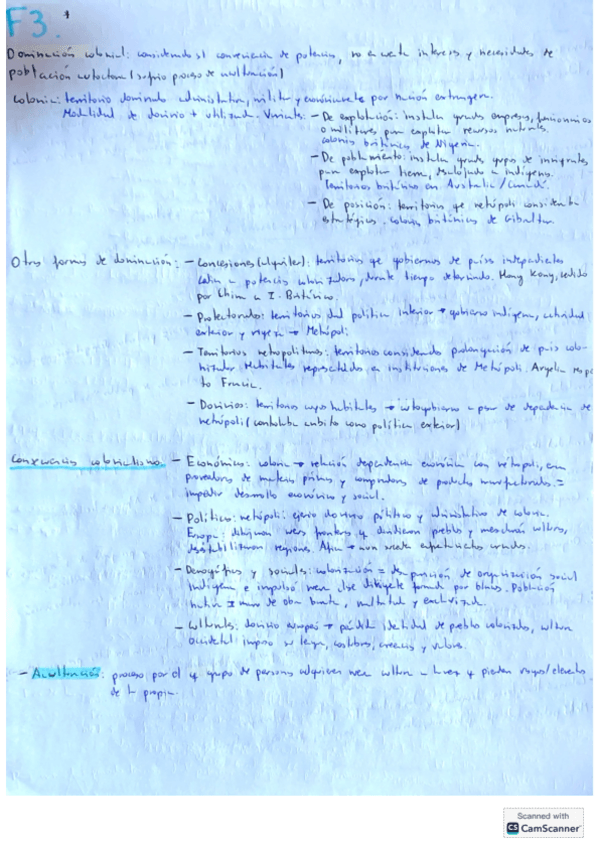 F3. 1
Dominación colonial: considerando sí conveniencia de potencias, no en cuenta intereses y necesidades de
población autóctona (sufrió proceso de aculturación)
Colonia: territorio dominado administrativa, militar y económicamente por nación extranjera.
Modalidad de dominio + utilizada. Variante: - De explotación: instalan grandes empresas, funcionarios
o militares para explotar recursos naturales.
colonia británica de Nigeria.
- De poblamiento: instalan grandes grupos de inmigrantes
para explotar tierra, desalojando a indígenas.
Territorios británicos en Australia/Canadá.
- De posición: territorios que metrópoli considerada
estratégicos. colonia británica de Gibraltar.
Otras formas de dominación: - Concesiones (alquiler): territorios que gobiernos de países independientes
a potencias colonizadoras, durante tiempo determinado. Hong Kong, cedido
por China a I. Británico.
- Protectorados: territorios del política interior → gobierno indígena, actividad
exterior y → Metrópoli.
- Territorios metropolitanos: territorios considerados prolongación de país colo-
nizador. Habitantes representados en instituciones de Metrópoli. Argelia respec
to Francia.
- Dominios: territorios cuyos habitantes → autogobierno a pesar de dependencia de
metrópoli (controlaba ámbitos como política exterior)
Consecuencias colonialismo: - Económicas: colonia → relación dependencia económica con metrópoli, eran
proveedoras de materias primas y compradoras de productos manufacturados =
impedir desarrollo económico y social.
- Políticas: metrópoli: ejerció dominio político y administrativo de colonia.
Europa: dibujaron nuevas fronteras y dividieron pueblos y mezclaron culturas,
desestabilizaron regiones. África →
- Demográficas y sociales: colonización = desaparición de organización social
indígena e impulsó nueva clase dirigente formada por blancos. Población
nativa mano de obra barata, maltratada y esclavizada.
- Culturales: dominio europeo → pérdida identidad de pueblos colonizados, cultura
occidental impuso su lengua, costumbres, creencias y valores.
- Aculturación: proceso por el q grupo de personas adquieren nueva cultura a fuerza y pierden rasgos/elementos
de la propia.
Scanned with
CS CamScanner